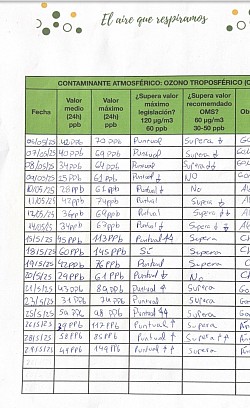 El aire que respiramos
CONTAMINANTE ATMOSFÉRICO: OZONO TROPOSFÉRICO (
Fecha
Valor medio (24h) ppb
Valor máximo (24h) ppb
¿Supera valor máximo legislación? 120 µg/m3 60 ppb
¿Supera valor recomemdado OMS? 60 µg/m3 30-50 ppb
Ob
06/05/25 70 ppb Puntual Supera
07/05/25 40 ppb 69 ppb Puntual Supera
08/05/25 34 ppb 69 ppb Puntual Supera
09/05/25 25 ppb 61 ppb Puntual NO
10/05/25 28 ppb 61 ppb Puntual No
11/05/25 47 ppb 74 ppb Puntual Supera
12/05/25 36 ppb 69 ppb Puntual Supera
14/05/25 34 ppb 67 ppb Puntual Supera
15/5/25 45 ppb 113 ppb Puntual Supera
18/5/25 60 ppb 145 ppb Sí Supera
19/5/25 42 ppb 76 ppb Puntual Supera
20/5/25 29 ppb 61 ppb Puntual No
21/5/25 43 ppb 80 ppb Puntual Supera
23/5/25 31 ppb 74 ppb Puntual Supera
25/5/25 50 ppb Puntual Supera
26/5/25 39 ppb 117 ppb Puntual ↑ Supera
28/5/25 58 ppb 85 ppb Puntual ↑ Supera ↑↑
29/5/25 49 ppb 149 ppb Puntual ↑↑ Supera